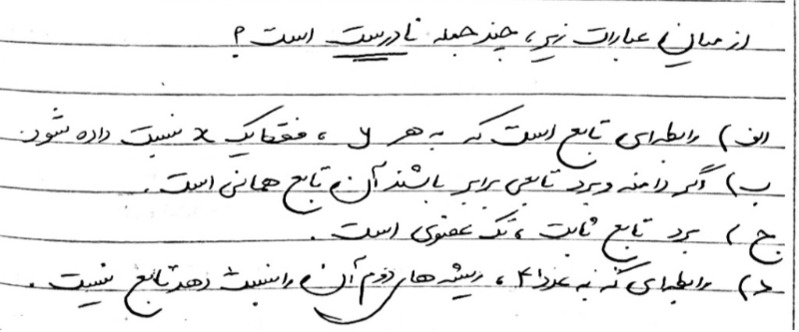 از میان عبارات زیر، چند جمله نادرست است؟
الف) رابطه‌ای تابع است که به هر y، فقط یک x نسبت داده شود.
ب) اگر دامنه و برد تابعی برابر باشند آن تابع همانی است.
ج) برد تابع ثابت، تک عضوی است.
د) رابطه‌ای که به عدد ۴، ریشه های دوم آن را نسبت دهد تابع نیست.